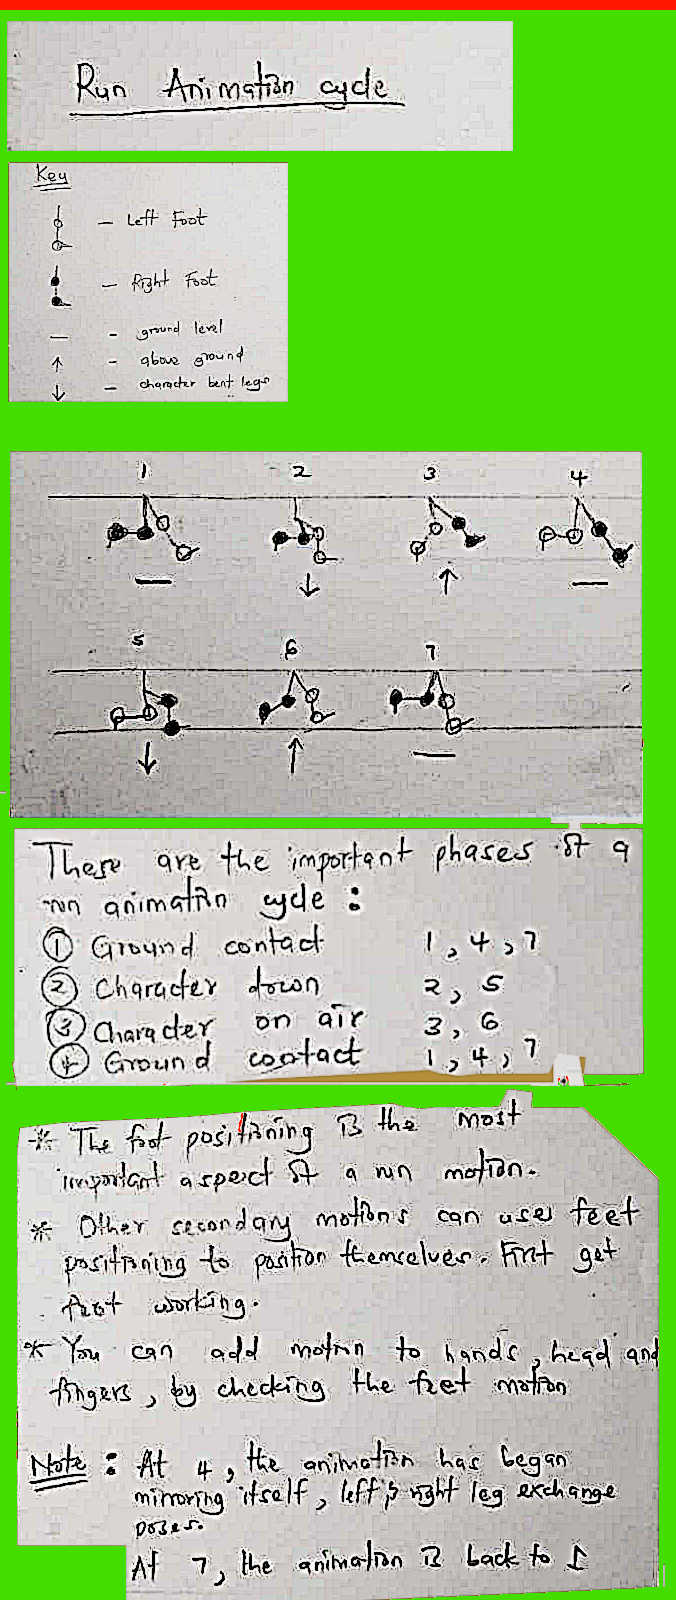 Run Animation cycle
Key
- Left Foot
- Right Foot
- ground level
- above ground
- character bent legs
1 2 3 4
5 6 7
These are the important phases of a
run animation cycle :
① Ground contact 1, 4, 7
② Character down 2, 5
③ Character on air 3, 6
④ Ground contact 1, 4, 7
* The foot positioning is the most
important aspect of a run motion.
* Other secondary motions can use feet
positioning to position themselves. First get
feet working.
* You can add motion to hands, head and
fingers, by checking the feet motion
Note : At 4, the animation has began
mirroring itself, left & right leg exchange
poses.
At 7, the animation is back to 1